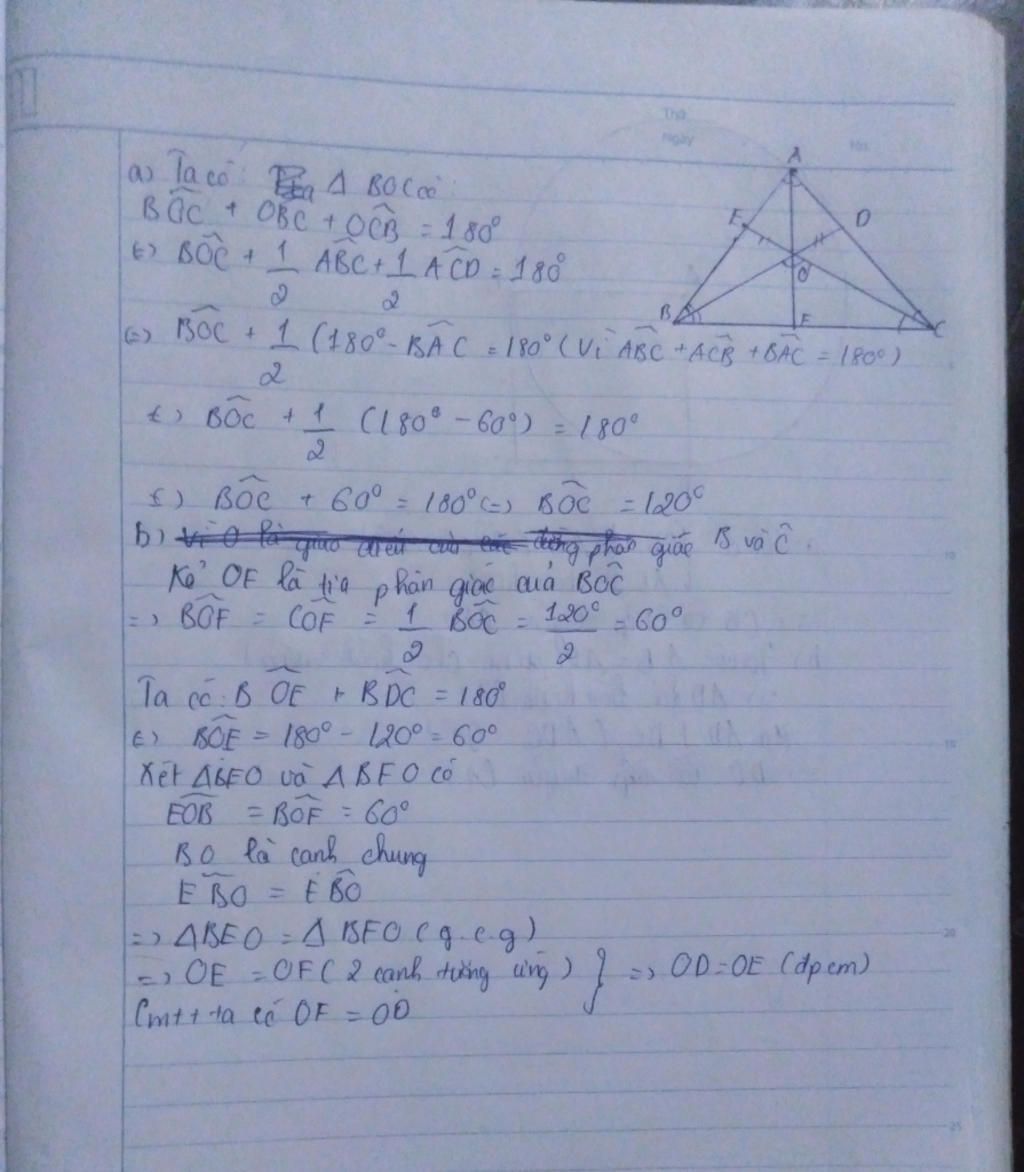 Thứ
Ngày
a) Ta có: Δ BOC có:
BÔC + OBC + OĈB = 180°
(=) BÔC + 1/2 AB̂C + 1/2 AĈD = 180°
(=) BÔC + 1/2 (180° - BÂC = 180° (Vì AB̂C + AĈB + BÂC = 180°)
(=) BÔC + 1/2 (180° - 60°) = 180°
(=) BÔC + 60° = 180° (=) BÔC = 120°
b) Vì O là giao điểm của các đường phân giác B và Ĉ.
Kẻ OF là tia phân giác của BÔC
=> BÔF = CÔF = 1/2 BÔC = 120°/2 = 60°
Ta có: BÔE + BD̂C = 180°
(=) BÔE = 180° - 120° = 60°
Xét ΔBEO và ΔBFO có
EÔB = BÔF = 60°
BO là cạnh chung
EB̂O = FB̂O
=> ΔBEO = Δ BFO (g.c.g)
=> OE = OF (2 cạnh tương ứng) } => OD = OE (đpcm)
Cmtt ta có OF = OD
A
E
D
O
B
F
C